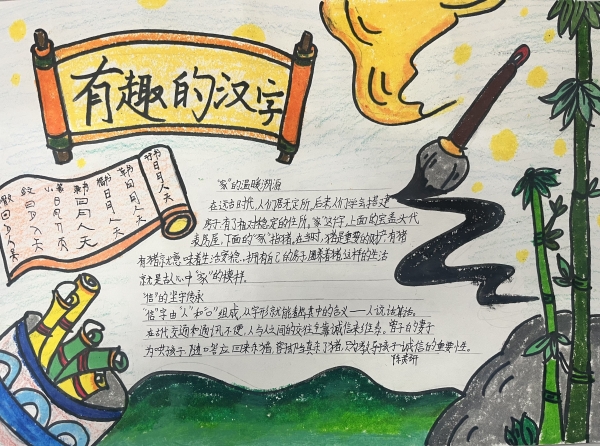 有趣的汉字
楷书 日月人天
草书 日月人天
隶书 日月人天
小篆
"家"的温暖溯源
在远古时代,人们居无定所,后来人们学会搭建
房子,有了相对稳定的住所。"家"这个字,上面的宝盖头代
表房屋,下面的"豕"指猪。在当时,猪是重要的财产,有猪
有猪就意味着生活安稳,拥有自己的房子,围养着猪这样的生活
就是古人心中"家"的模样。
"信"的坚守传承
"信"字由"人"和"言"组成,从字形就能看出其中的含义——人说话算话。
在古代交通和通讯不便,人与人之间的交往全靠诚信来维系。曾子的妻子
为哄孩子,随口答应回来杀猪,曾子却当真杀了猪,只为教导孩子诚信的重要性。